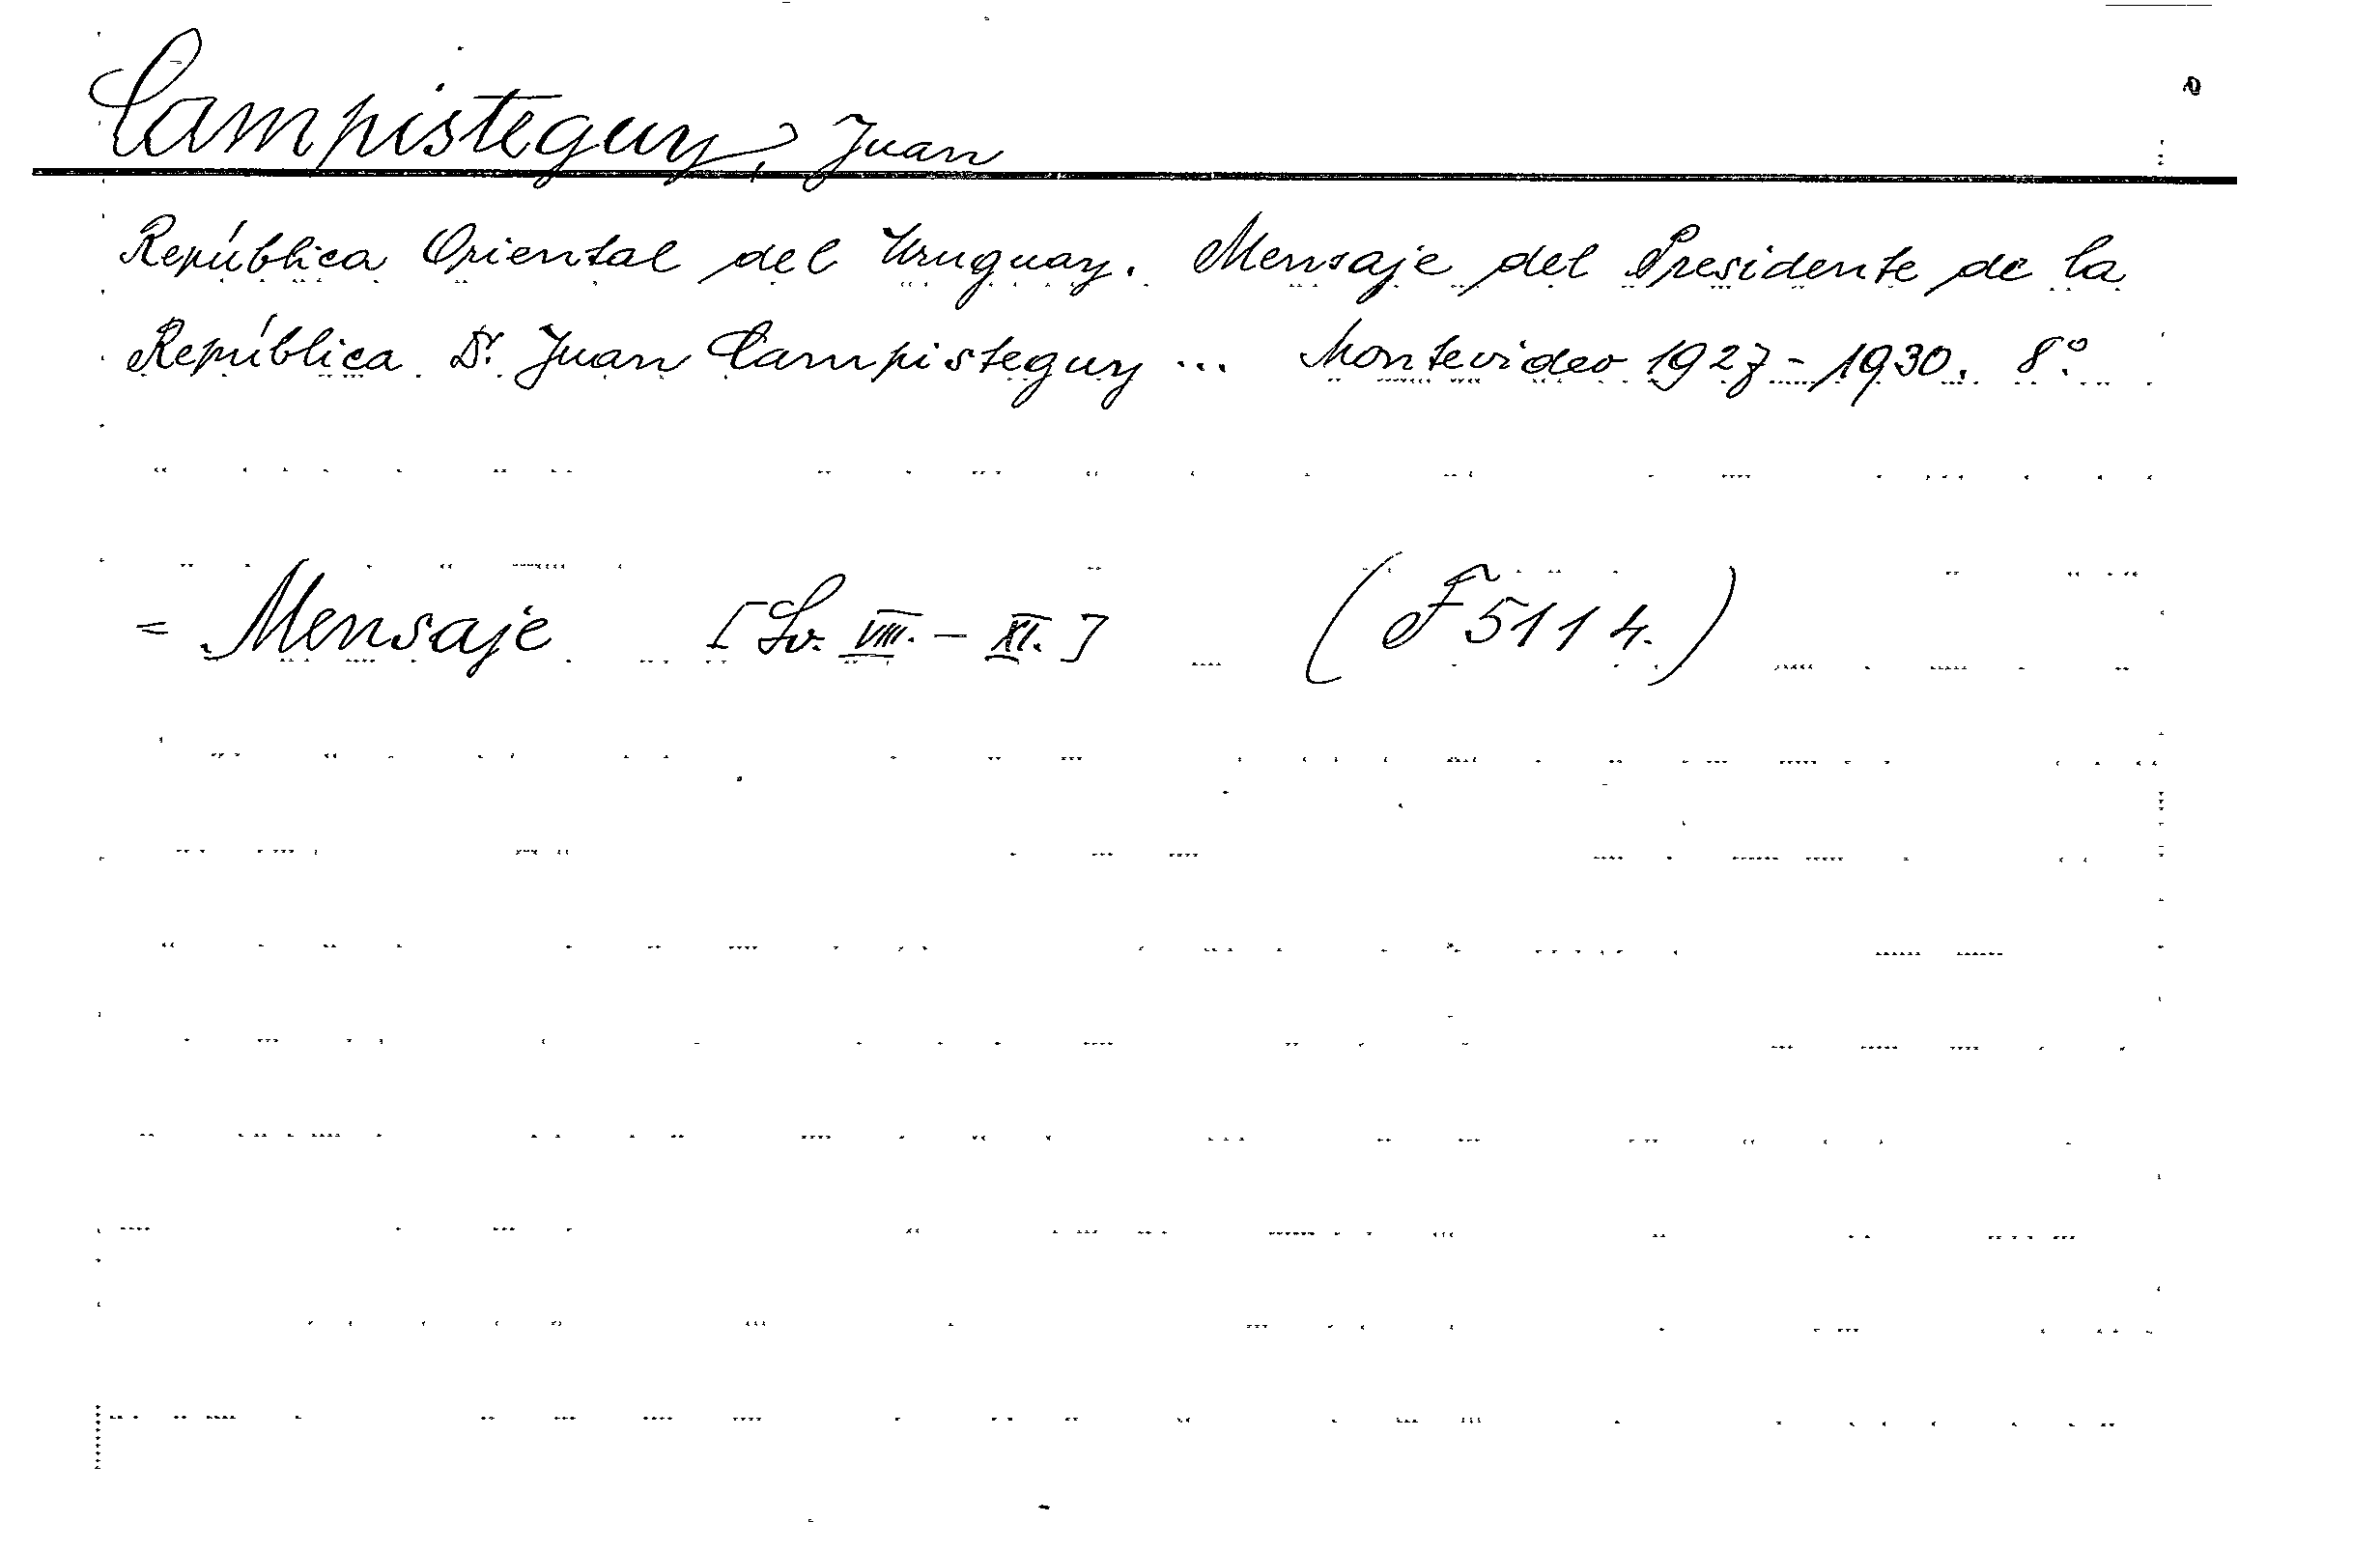 Campisteguy, Juan
República Oriental del Uruguay. Mensaje del Presidente de la
República Dr. Juan Campisteguy ... Montevideo 1927 - 1930. 8°.
= Mensaje [Sv. VIII. - XI.] (F 5114.)